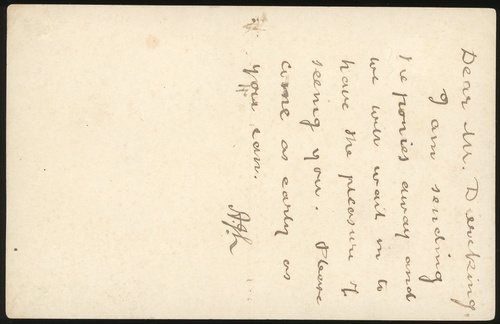 Dear Mr. Dewking,
I am sending
the ponies away and
we will wait in to
have the pleasure of
seeing you. Please
come as early as
you can.